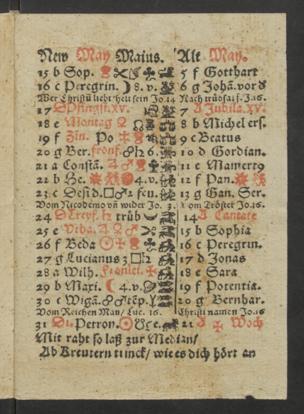 New May Maius. Alt May.
15 b Sop. 5 f Gotthart
16 c Peregrin. 8. v. 6 g Joha͂. vor d
Wer Christū liebt helt sein Jo. 14 Nach
17 Pfingst. xv. 7 A Jubila. xv.
18 e Montag 8 b Michel ers.
19 f Po 9 c Beatus
20 g Ber. fronf. 6. 10 d Gordian.
21 a Consta͂. 11 e Mamert9
22 b 4. v. 12 f Pan.
23 c Desid. 2 feu. 13 g Gan. Ser.
Vom Nicodemo vn͂ wider Jo. 3. Tröster Jo. 16
24 trüb 14 A Cantate
25 e Vrba. 15 b Sophia
26 f Beda 16 c Peregrin.
27 g Lucianus 3 17 d Jonas
28 a Wilh. 18 e Sara
29 b Maxi. 4. v. 19 f Potentia.
30 c Wiga͂. te͂p. 20 g Bernhar.
Vom Reichen Man/ Luc. 16. Christi namen Jo. 16
31 Petron. 21 A Woch
Mit raht so laß zur Median/
Ab Kreutern trinck/ wie es dich hört an